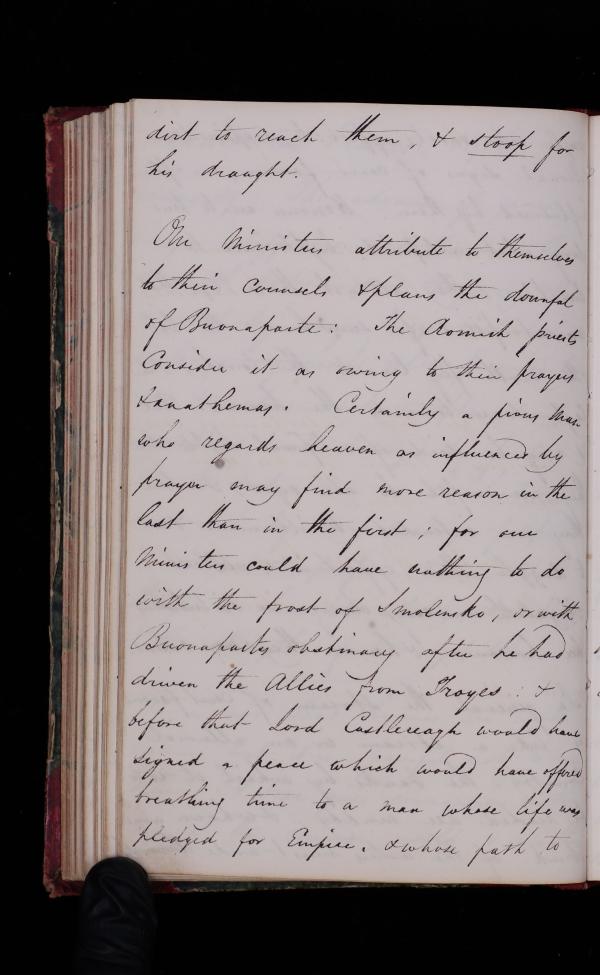 dirt to reach them, & stoop for
his draught.
Our Ministers attribute to themselves
to their Counsels & plans the downfal
of Buonaparte: The Romish priests
Consider it as owing to their prayers
& anathemas. Certainly a pious man
who regards heaven as influenced by
prayer may find more reason in the
last than in the first; for our
Ministers could have nothing to do
with the frost of Smolensko, or with
Buonapartes obstinacy after he had
driven the Allies from Troyes: &
before that Lord Castlereagh would have
signed a peace which would have offered
breathing time to a man whose life was
pledged for Empire. & whose path to